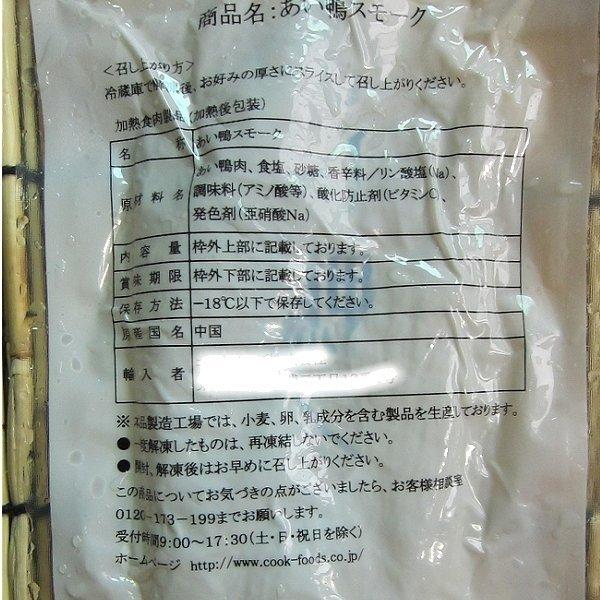 商品名：あい鴨スモーク
＜召し上がり方＞
冷蔵庫で解凍後、お好みの厚さにスライスして召し上がりください。
加熱食肉製品（加熱後包装）
名称 あい鴨スモーク
原材料名 あい鴨肉、食塩、砂糖、香辛料／リン酸塩（Na）、
調味料（アミノ酸等）、酸化防止剤（ビタミンC）、
発色剤（亜硝酸Na）
内容量 枠外上部に記載しております。
賞味期限 枠外下部に記載しております。
保存方法 －18℃以下で保存してください。
原産国名 中国
輸入者
※本品製造工場では、小麦、卵、乳成分を含む製品を生産しております。
●一度解凍したものは、再凍結しないでください。
●開封、解凍後はお早めに召し上がりください。
この商品についてお気づきの点がございましたら、お客様相談室
0120-173-199までお願いします。
受付時間9:00～17:30（土・日・祝日を除く）
ホームページ http://www.cook-foods.co.jp/